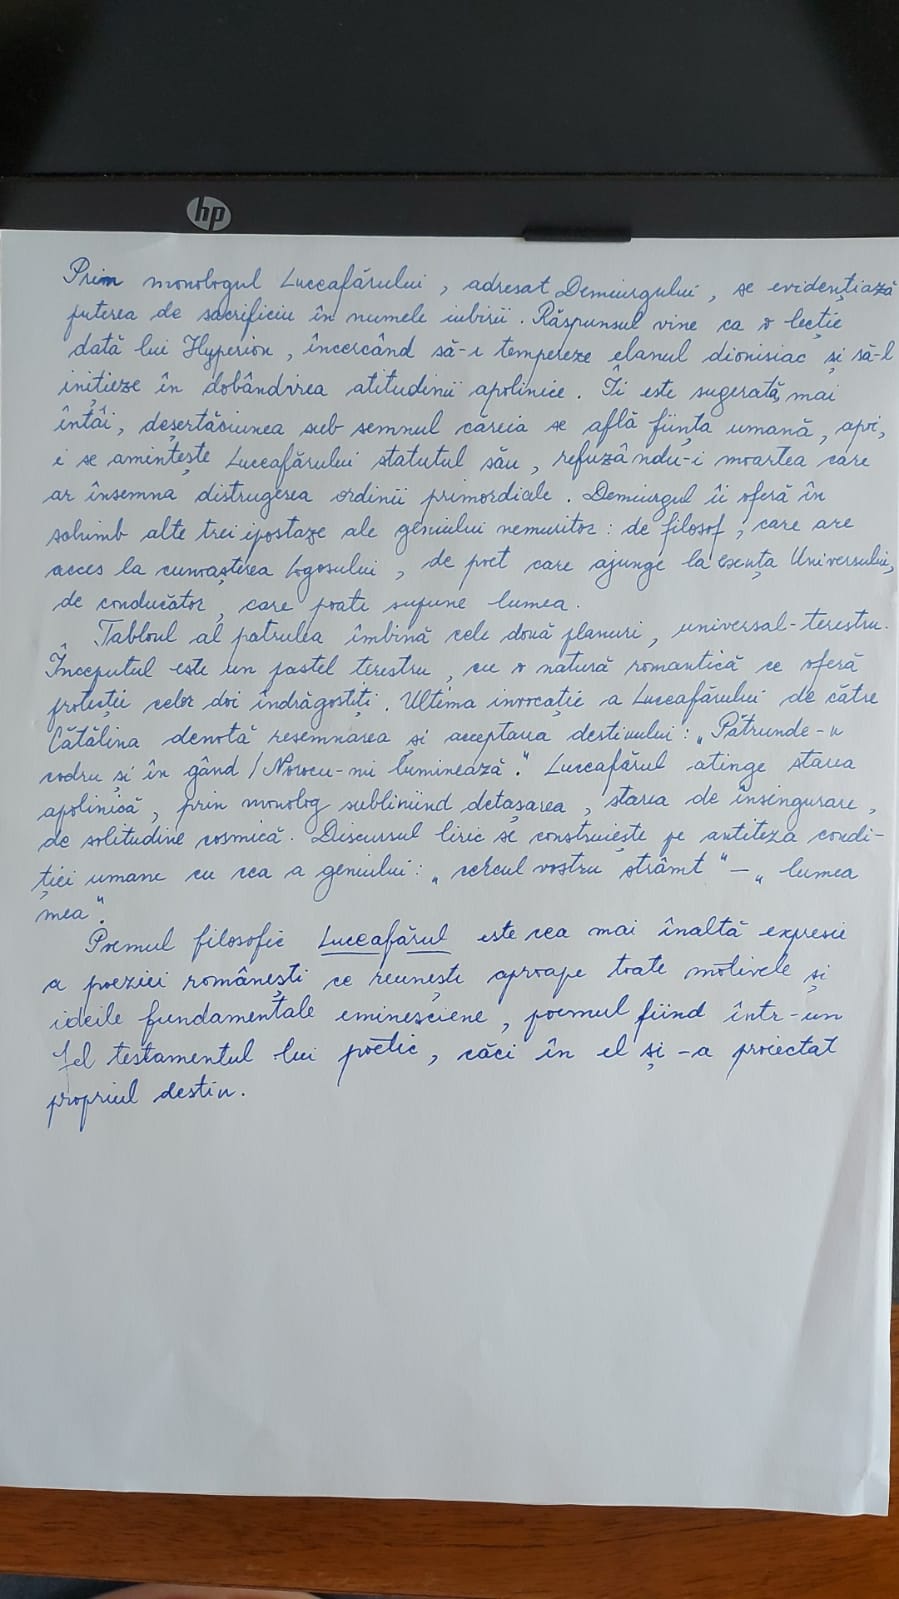 hp
Prin monologul Luceafărului, adresat Demiurgului, se evidențiază
puterea de sacrificiu în numele iubirii. Răspunsul vine ca o lecție
dată lui Hyperion, încercând să-i tempereze elanul dionisiac și să-l
inițieze în dobândirea atitudinii apolinice. Îi este sugerată, mai
întâi, deșertăciunea sub semnul careia se află ființa umană, apoi,
i se amintește Luceafărului statutul său, refuzându-i moartea care
ar însemna distrugerea ordinii primordiale. Demiurgul îi oferă în
schimb alte trei ipostaze ale geniului nemuritor: de filosof, care are
acces la cunoașterea Logosului, de poet care ajunge la esența Universului,
de conducător, care poate supune lumea.
Tabloul al patrulea îmbină cele două planuri, universal-terestru.
Începutul este un pastel terestru, cu o natură romantică ce oferă
protecție celor doi îndrăgostiți. Ultima invocație a Luceafărului de către
Cătălina denotă resemnarea și acceptarea destinului: „Pătrunde-n
codru și în gând / Norocu-mi luminează." Luceafărul atinge starea
apolinică, prin monolog subliniind detașarea, starea de însingurare,
de solitudine cosmică. Discursul liric se construiește pe antiteza condi-
ției umane cu cea a geniului: „cercul vostru strâmt" – „lumea
mea".
Poemul filosofic Luceafărul este cea mai înaltă expresie
a poeziei românești ce reunește aproape toate motivele și
ideile fundamentale eminesciene, poemul fiind într-un
fel testamentul lui poetic, căci în el și-a proiectat
propriul destin.